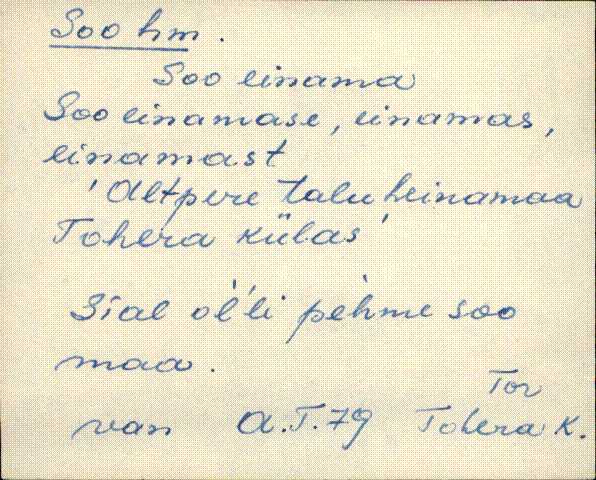 Soo hm.
Soo einama
Soo einamase, einamas,
einamast
'Altpere talu heinamaa
Tohera külas'
Sial ol'li pèhme soo
maa.
Tor
van A.T.79 Tohera K.